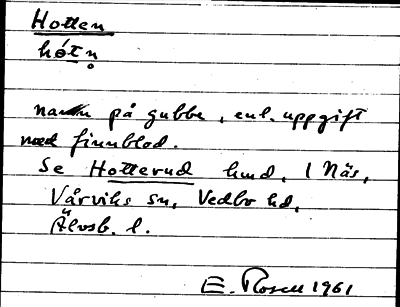 Hotten
hót n̥
namn på gubbe, enl. uppgift
med finnblod.
Se Hotterud hmd, i Näs,
Vårviks sn, Vedbo hd,
Älvsb. l.
E. Rosell 1961